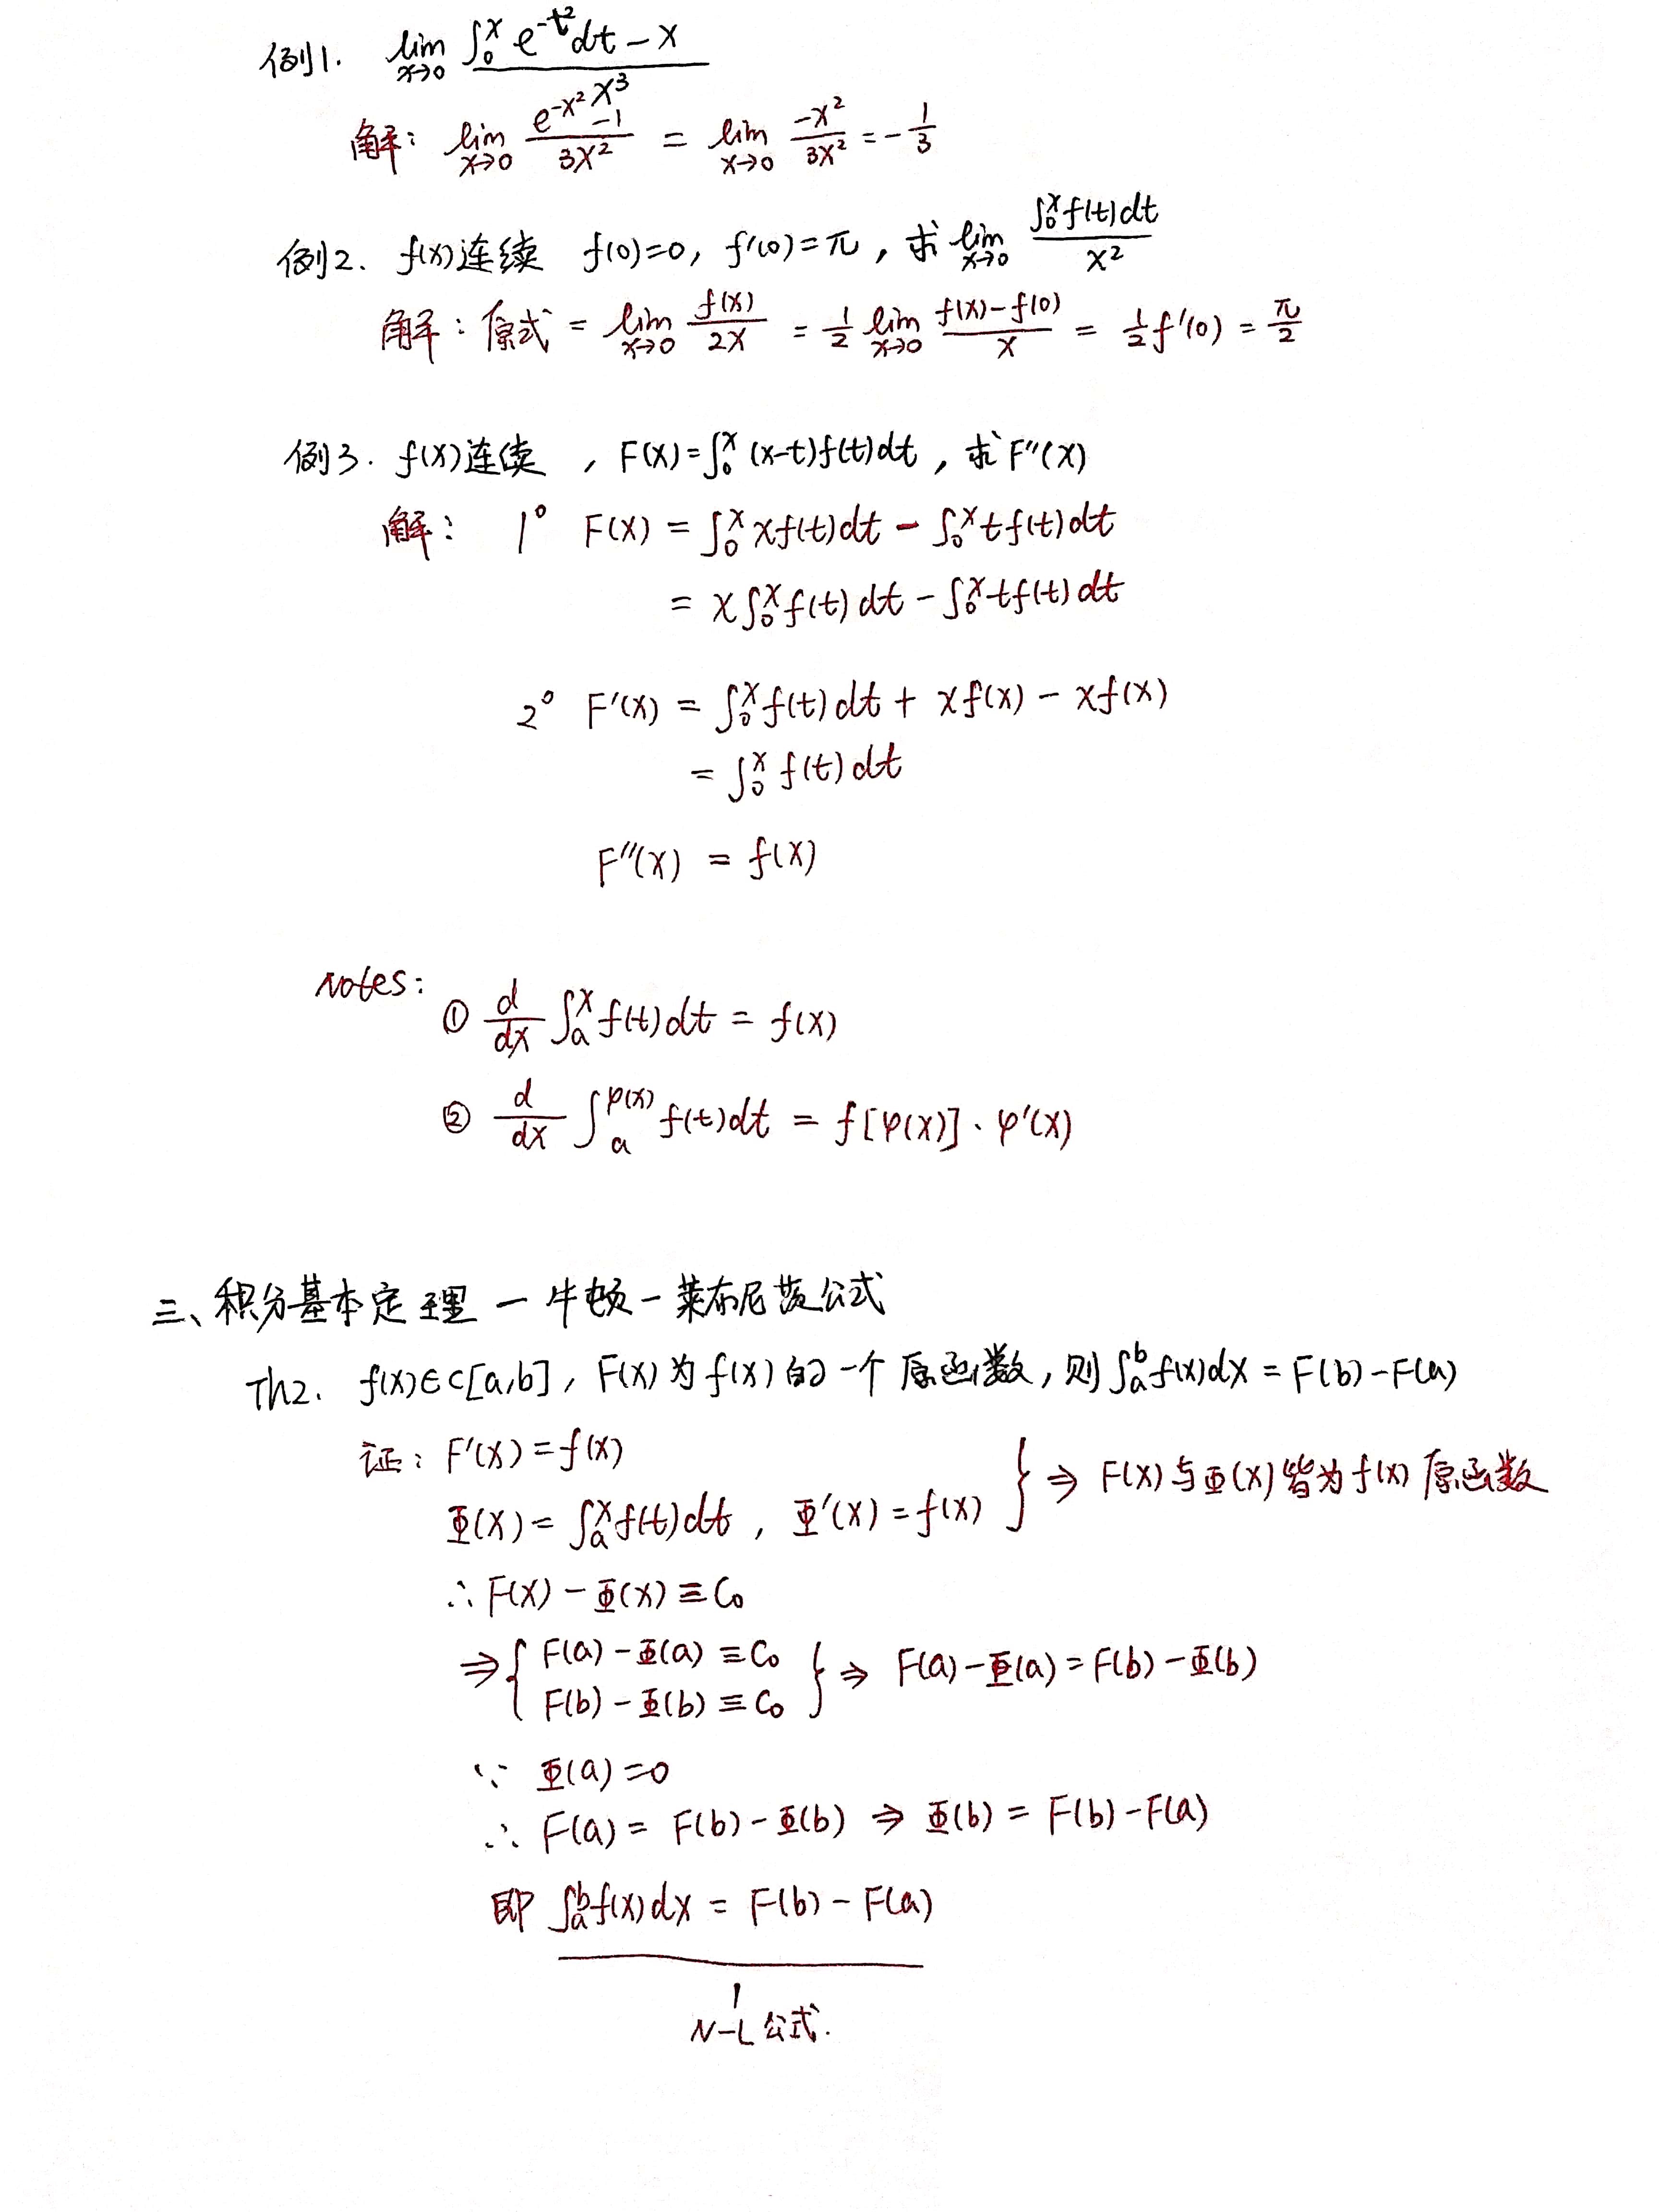 例1. lim_{x→0} (∫₀ˣ e^{-t²}dt - x) / x³
解: lim_{x→0} (e^{-x²} - 1) / 3x² = lim_{x→0} -x² / 3x² = -1/3
例2. f(x)连续 f(0)=0, f'(0)=π, 求 lim_{x→0} ∫₀ˣf(t)dt / x²
解: 原式 = lim_{x→0} f(x) / 2x = 1/2 lim_{x→0} (f(x)-f(0)) / x = 1/2 f'(0) = π/2
例3. f(x)连续, F(x)=∫₀ˣ(x-t)f(t)dt, 求F''(x)
解: 1° F(x) = ∫₀ˣ xf(t)dt - ∫₀ˣ tf(t)dt
= x∫₀ˣ f(t)dt - ∫₀ˣ tf(t)dt
2° F'(x) = ∫₀ˣ f(t)dt + xf(x) - xf(x)
= ∫₀ˣ f(t)dt
F''(x) = f(x)
Notes:
① d/dx ∫ₐˣ f(t)dt = f(x)
② d/dx ∫ₐ^{φ(x)} f(t)dt = f[φ(x)]·φ'(x)
三、积分基本定理 — 牛顿-莱布尼茨公式
Th2. f(x)∈C[a,b], F(x)为f(x)的一个原函数, 则∫ₐᵇf(x)dx = F(b)-F(a)
证: F'(x)=f(x)
Φ(x)=∫ₐˣf(t)dt, Φ'(x)=f(x) } ⇒ F(x)与Φ(x)皆为f(x)原函数
∴ F(x)-Φ(x)≡C₀
⇒ { F(a)-Φ(a)≡C₀
F(b)-Φ(b)≡C₀ } ⇒ F(a)-Φ(a)=F(b)-Φ(b)
∵ Φ(a)=0
∴ F(a)=F(b)-Φ(b) ⇒ Φ(b)=F(b)-F(a)
即 ∫ₐᵇf(x)dx = F(b)-F(a)
N-L公式.